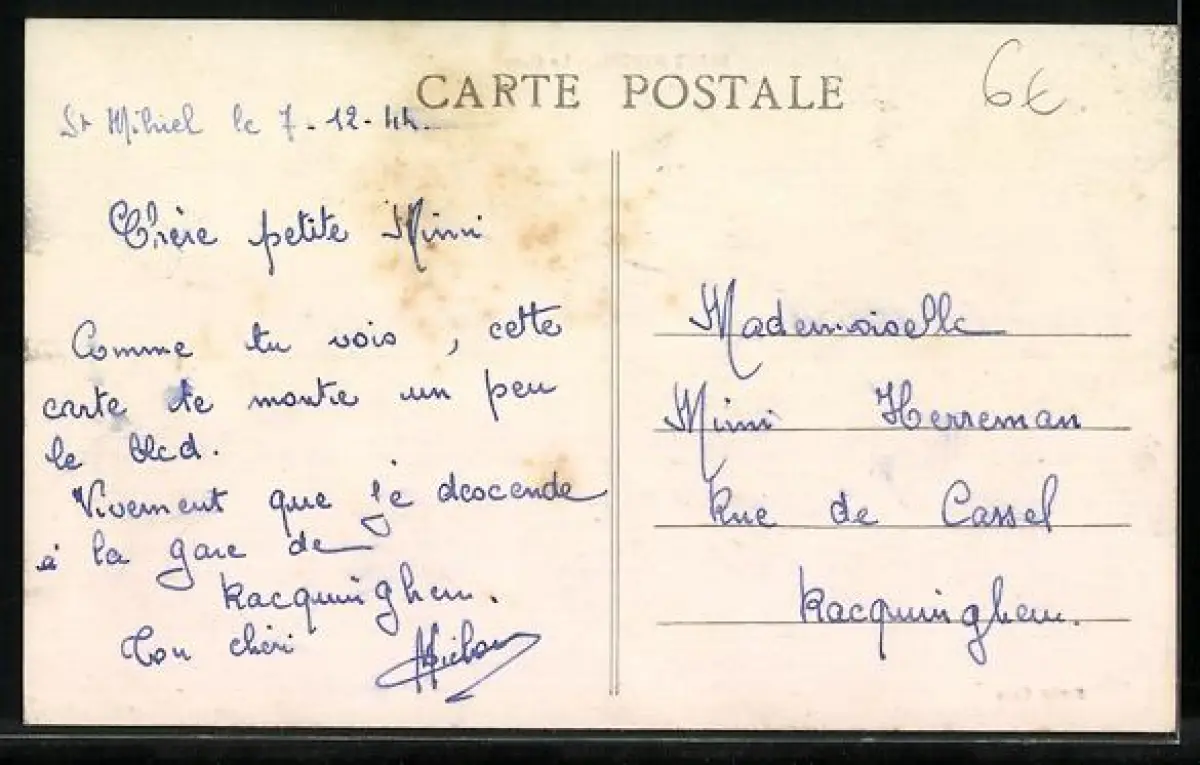 CARTE POSTALE
6€
St Mihiel le 7-12-44.
Chère petite Mimi
Comme tu vois, cette
carte te montre un peu
le bled.
Vivement que je descende
à la gare de
Racquinghem.
Ton chéri
Mademoiselle
Mimi Herreman
Rue de Cassel
Racquinghem.